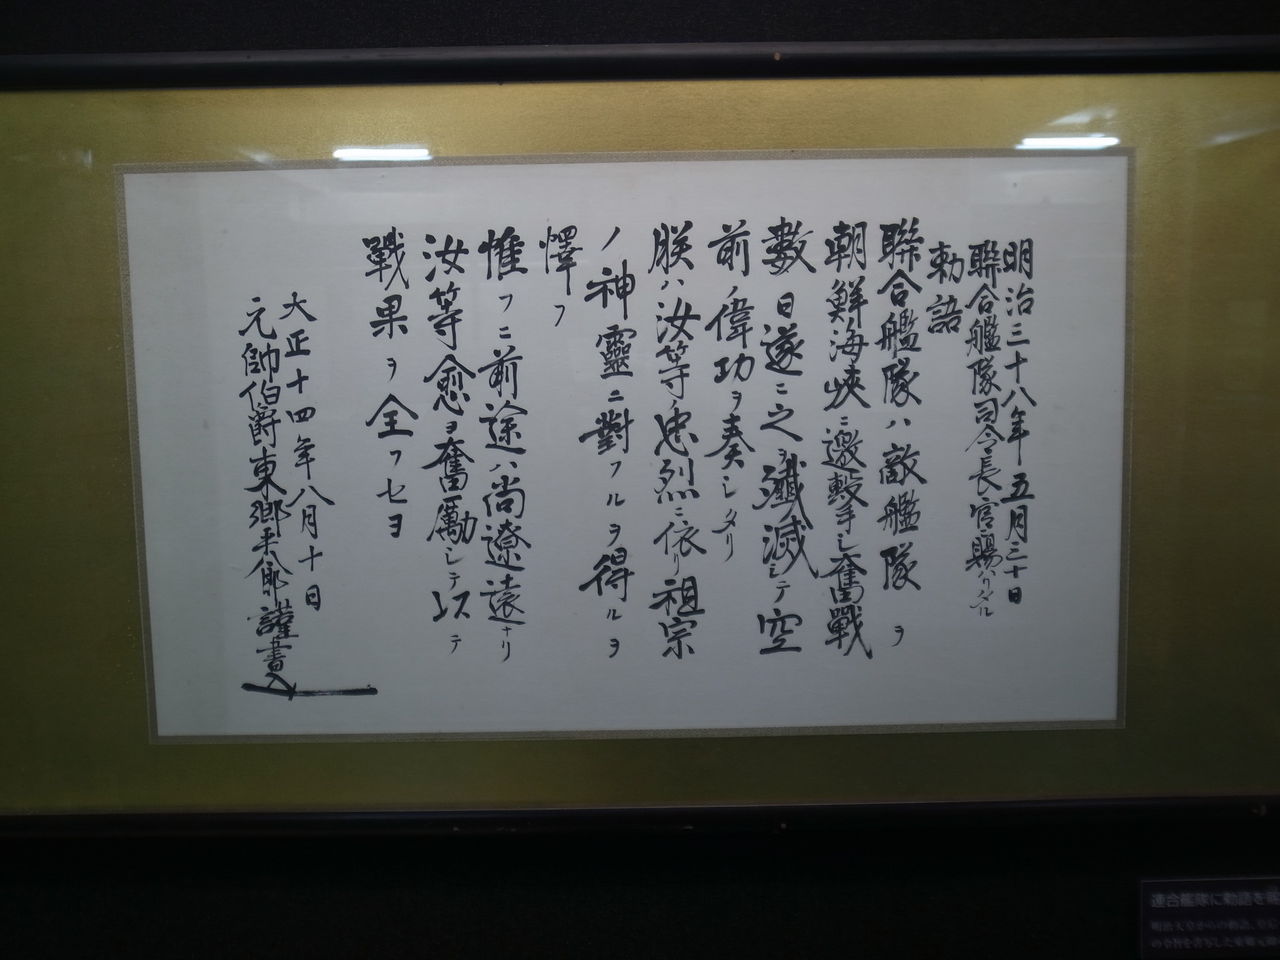 明治三十八年五月三十日
聯合艦隊司令長官ニ賜ハリタル
勅語
聯合艦隊ハ敵艦隊ヲ
朝鮮海峽ニ邀擊シ奮戰
數日遂ニ之ヲ殲滅シテ空
前ノ偉功ヲ奏シタリ
朕ハ汝等ノ忠烈ニ依リ祖宗
ノ神靈ニ對フルヲ得ルヲ
懌フ
惟フニ前途ハ尚遼遠ナリ
汝等愈ヨ奮勵シテ以テ
戰果ヲ全フセヨ
大正十四年八月十日
元帥伯爵東郷平八郎謹書
連合艦隊に勅語を
明治天皇からの勅語。